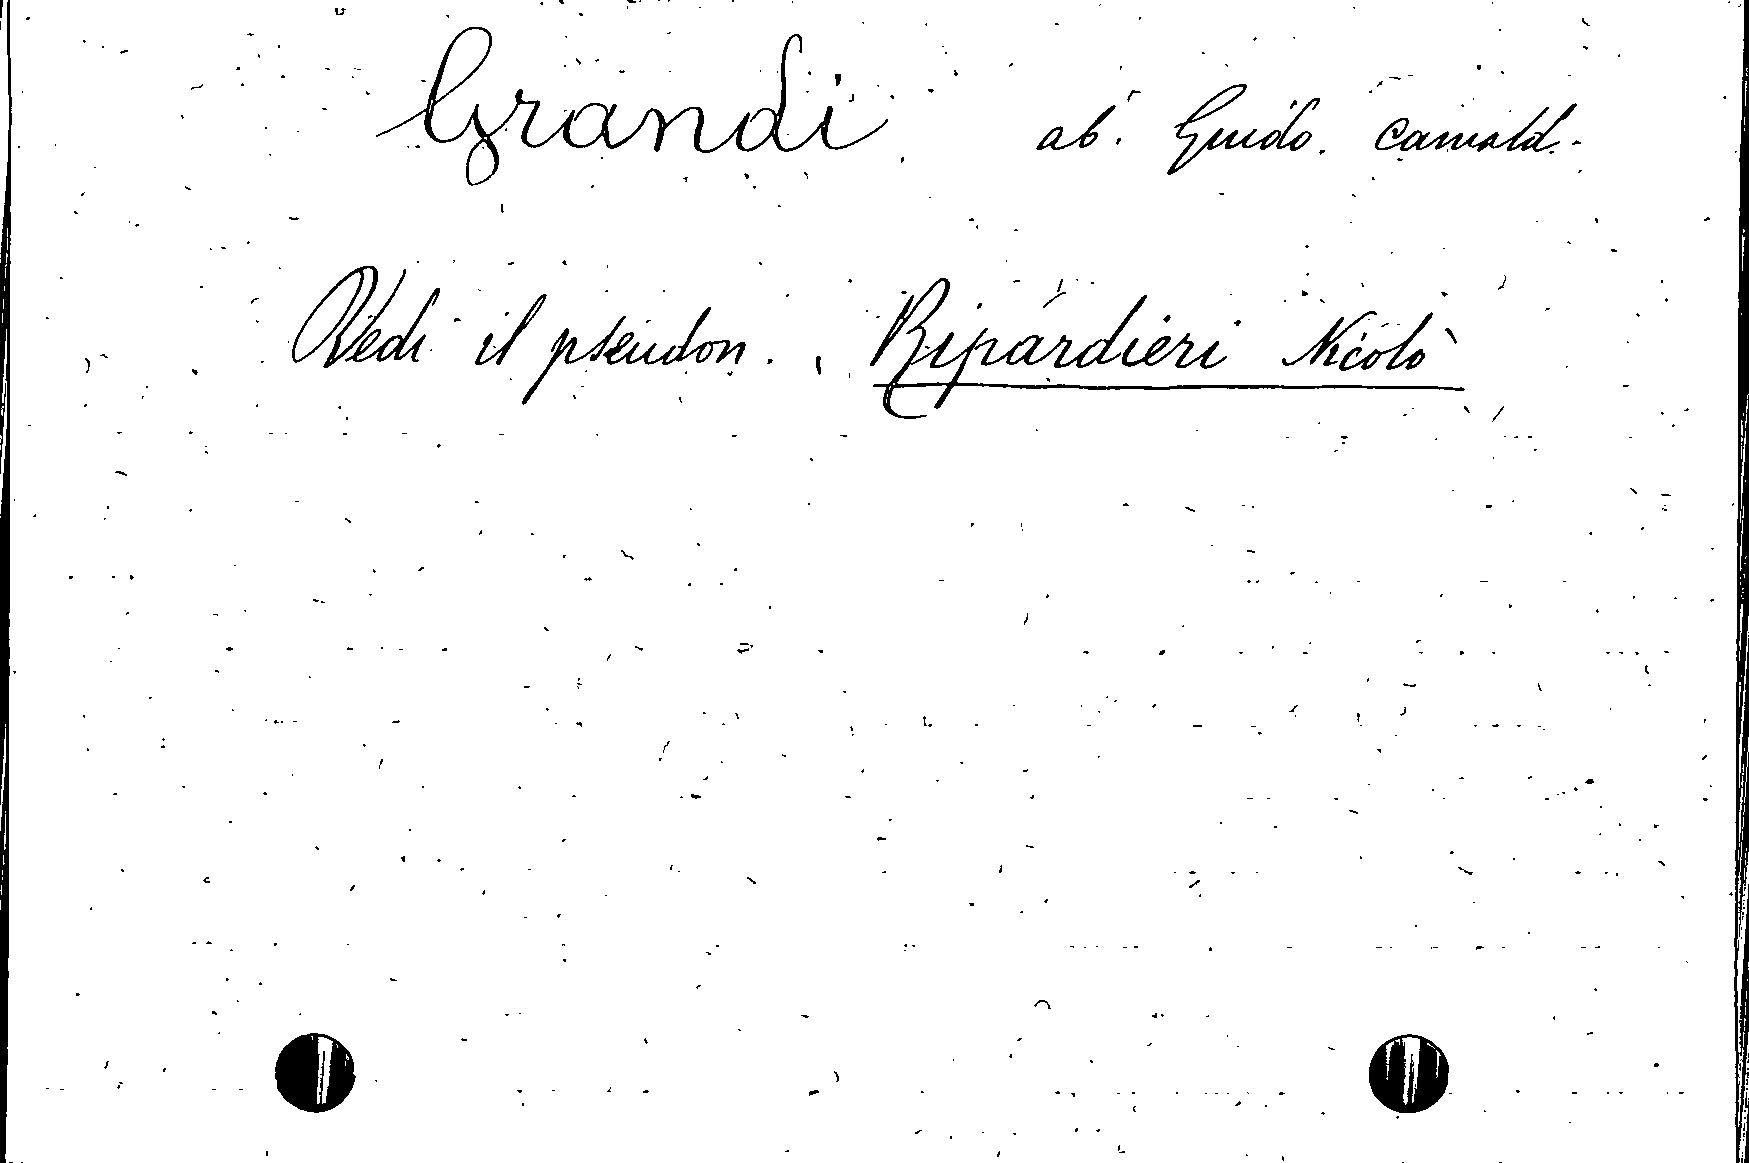 Grandi ab. Guido. camald.
Vedi il pseudon. Ripardieri Nicolò